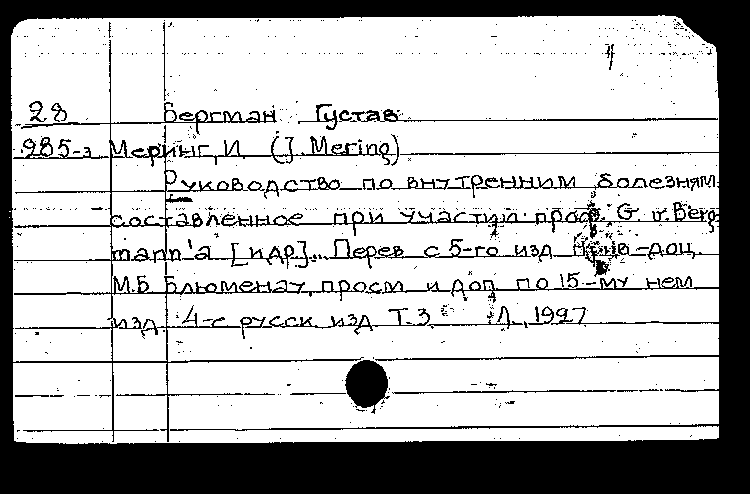 28 Бергман Густав
285-3 Меринг, И. (J. Mering)
Руководство по внутренним болезням
составленное при участии проф. G. v. Berg
mann'a [и др]... Перев с 5-го изд прив-доц.
М.Б Блюменау, просм и доп по 15-му нем
изд. 4-е русск. изд Т.3 Л., 1927